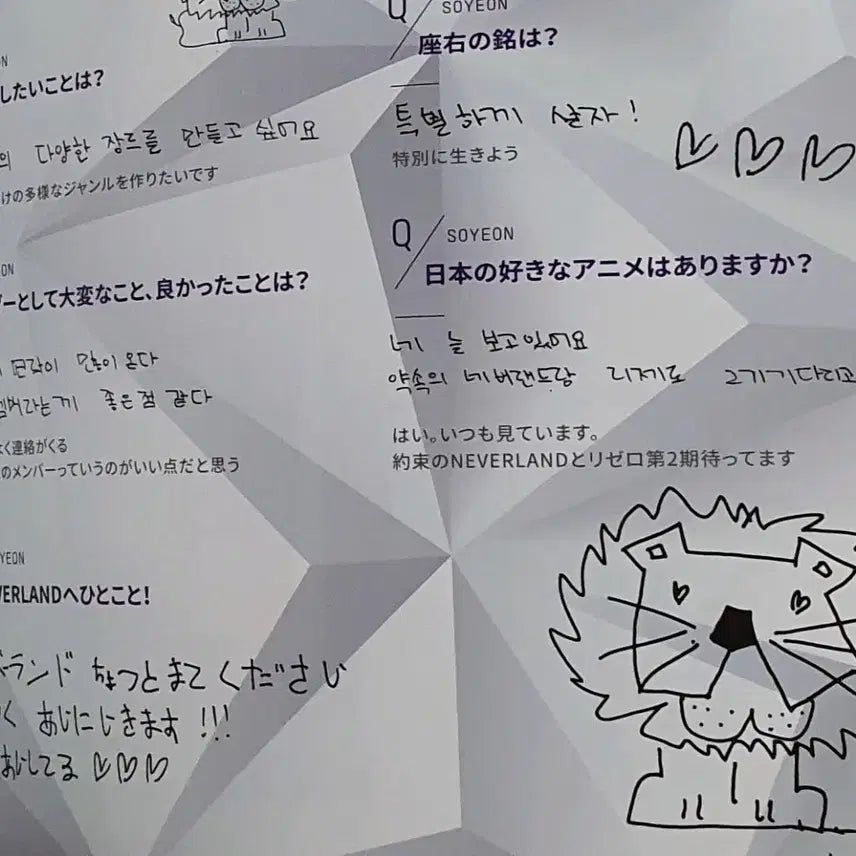 Q
SOYEON
座右の銘は？
특별하게 살자!
特別に生きよう
したいことは？
다양한 장르를 만들고 싶어요
けの多様なジャンルを作りたいです
Q
SOYEON
日本の好きなアニメはありますか？
네 늘 보고있어요
약속의 네버랜드랑 리제로 2기기다리고
はい。いつも見ています。
約束のNEVERLANDとリゼロ第2期待ってます
ーとして大変なこと、良かったことは？
많이 온다
좋은점 같다
く連絡がくる
のメンバーっていうのがいい点だと思う
YEON
VERLANDへひとこと！
ランド ちょっとまてください
く あいにいきます !!!
あいしてる